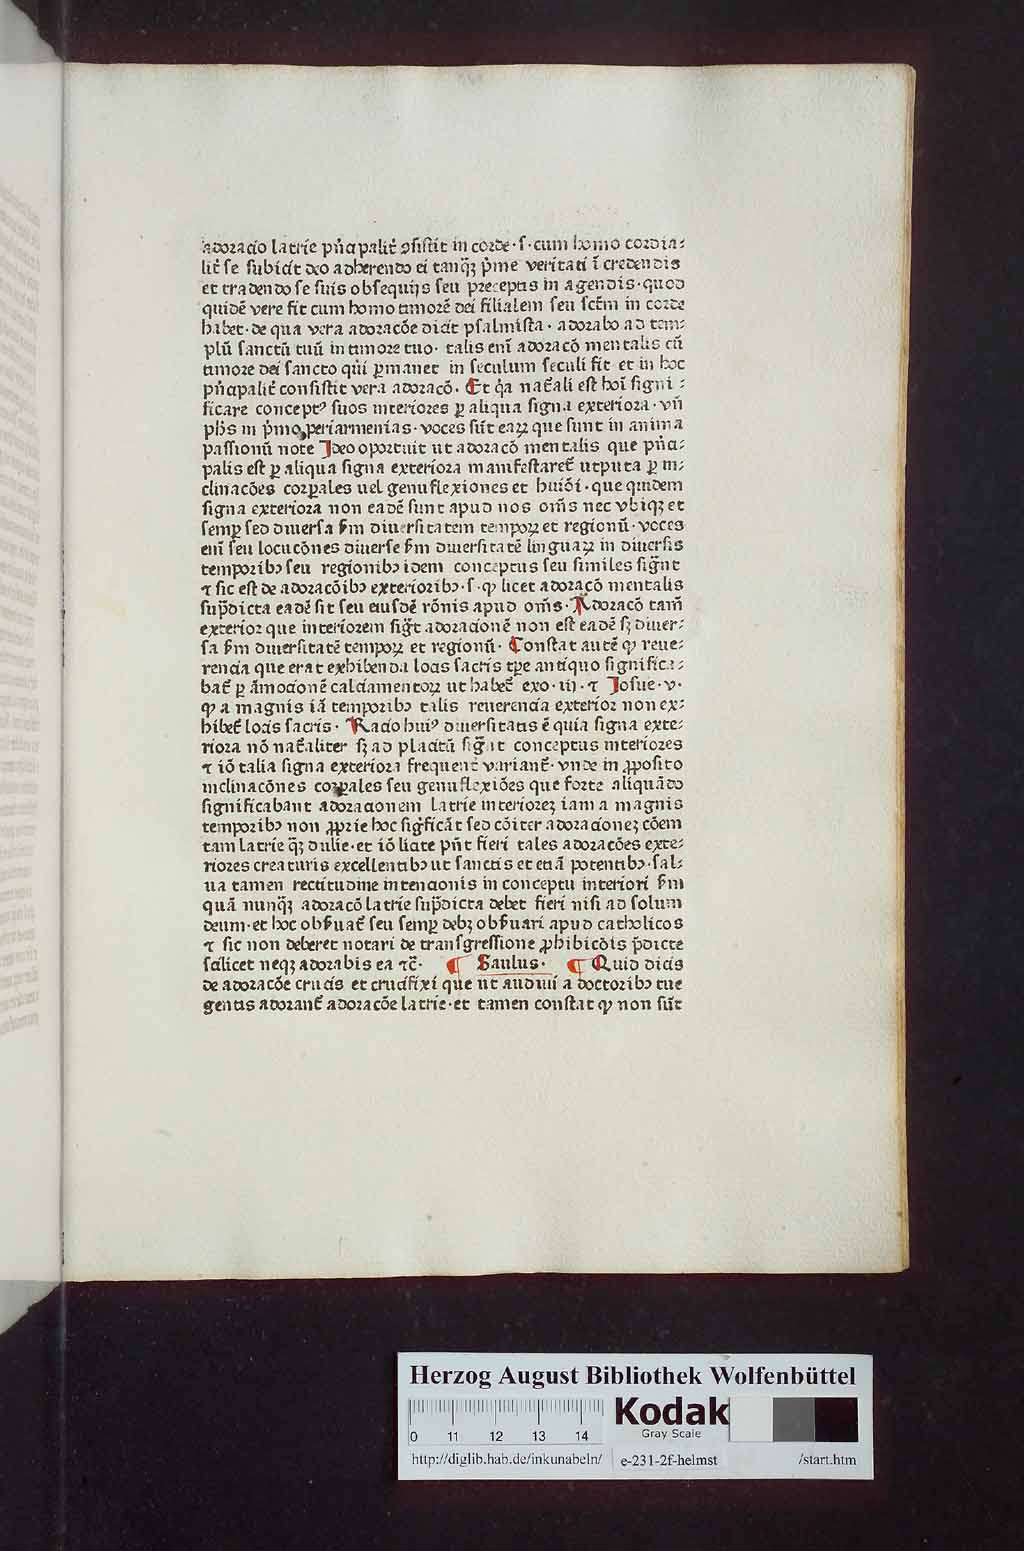 adoracio latrie pͥncipalit̉ ꝯsistit in corde · s · cum homo cordia⸗
lit̉ se subicit deo adherendo ei tanqͣꝫ pͥme veritati ī credendis
et tradendo se suis obsequijs seu preceptis in agendis · quod
quidē vere fit cum homo timorē dei filialem seu sc̄tm̄ in corde
habet · de qua vera adoracōe dicit psalmista · adorabo ad tem⸗
plū sanctū tuū in timore tuo · talis eni̅ adoracō mentalis cū
timore dei sancto qui ꝑmanet in seculum seculi fit et in hoc
pͥncipalit̉ consistit vera adoracō · Et qͥa nat̉ali est hoī signi⸗
ficare conceptꝰ suos interiores ꝑ aliqua signa exteriora · vn̄
ph̄s in pͥmo periarmenias · voces sūt eaꝝ que sunt in anima
passionū note Ideo oportuit ut adoracō mentalis que pͥnci⸗
palis est ꝑ aliqua signa exteriora manifestaret̉ utputa ꝑ in⸗
clinacōes corꝑales uel genuflexiones et huiōi · que quidem
signa exteriora non eadē sunt apud nos om̄s nec vbiqꝫ et
semꝑ sed diuersa ẜm diuersitatem tempoꝝ et regionū · voces
eni̅ seu locucōnes diuerse ẜm diuersitatē linguaꝝ in diuersis
temporibꝫ seu regionibꝫ idem conceptus seu similes sigͣnt
⁊ sic est de adoracōibꝫ exterioribꝫ · s · ꝙ licet adoracō mentalis
supͣdicta eadē sit seu eiusdē rōnis apud om̄s · Adoracō tam̄
exterior que interiorem sigͣt adoracionē non est eadē sꝫ diuer⸗
sa ẜm diuersitatē tempoꝝ et regionū · Constat autē ꝙ reue⸗
rencia que erat exhibenda locis sacris tp̄e antiquo significa⸗
bat̉ ꝑ āmocionē calciamentoꝝ ut habet̉ exo · iij · ⁊ Iosue · v ·
ꝙ a magnis iā temporibꝫ talis reuerencia exterior non ex⸗
hibet̉ locis sacris · Racio huiꝰ diuersitatis ē quia signa exte⸗
riora nō nat̉aliter sꝫ ad placitū sigͣnt conceptus interiores
⁊ iō talia signa exteriora frequent̉ variant̉ · vnde in ꝓposito
inclinacōnes corꝑales seu genuflexiōes que forte aliquādo
significabant adoracionem latrie interiorēꝫ iam a magnis
temporibꝫ non ꝓprie hoc sigͣficāt sed cōiter adoracioneꝫ cōem
tam latrie qͣꝫ dulie · et iō licite pn̄t fieri tales adoracōes exte⸗
riores creaturis excellentibꝫ ut sanctis et etiā potentibꝫ · sal⸗
ua tamen rectitudine intencionis in conceptu interiori ẜm
quā nunqͣꝫ adoracō latrie supͣdicta debet fieri nisi ad solum
deum · et hoc obẜuat̉ seu semꝑ debꝫ obẜuari apud catholicos
⁊ sic non deberet notari de transgressione ꝓhibicōis p̄dicte
scilicet neqꝫ adorabis ea ⁊c̄ · ¶ Saulus · ¶ Quid dicis
de adoracōe crucis et crucifixi que ut audiui a doctoribꝫ tue
gentis adorant̉ adoracōe latrie · et tamen constat ꝙ non sūt
Herzog August Bibliothek Wolfenbüttel
0 11 12 13 14
Kodak
Gray Scale
http://diglib.hab.de/inkunabeln/ e-231-2f-helmst /start.htm